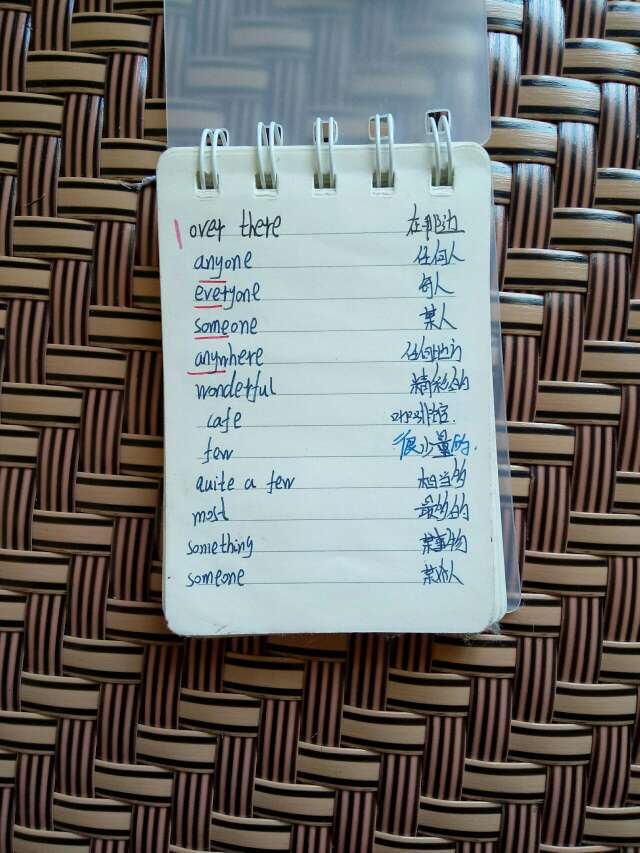 over there 在那边
anyone 任何人
everyone 每人
someone 某人
anywhere 任何地方
wonderful 精彩的
cafe 咖啡馆.
few 很少量的.
quite a few 相当多
most 最多的
something 某事物
someone 某个人